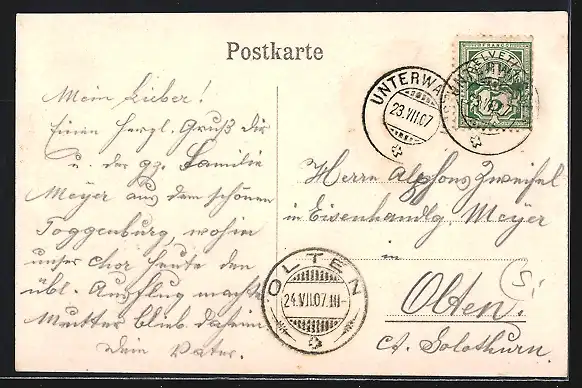 Postkarte
Mein Lieber!
Einen herzl. Gruß dir
u. der gg. Familie
Meyer aus dem schönen
Toggenburg, wohin
unser Chor heute den
übl. Ausflug macht.
Mutter blieb daheim
Dein Vater.
UNTERWA
23.VII.07
HELVETIA
Herrn Alphons Zweifel
in Eisenhandlg Meyer
in
Olten.
Ct. Solothurn.
OLTEN
24.VII.07.III